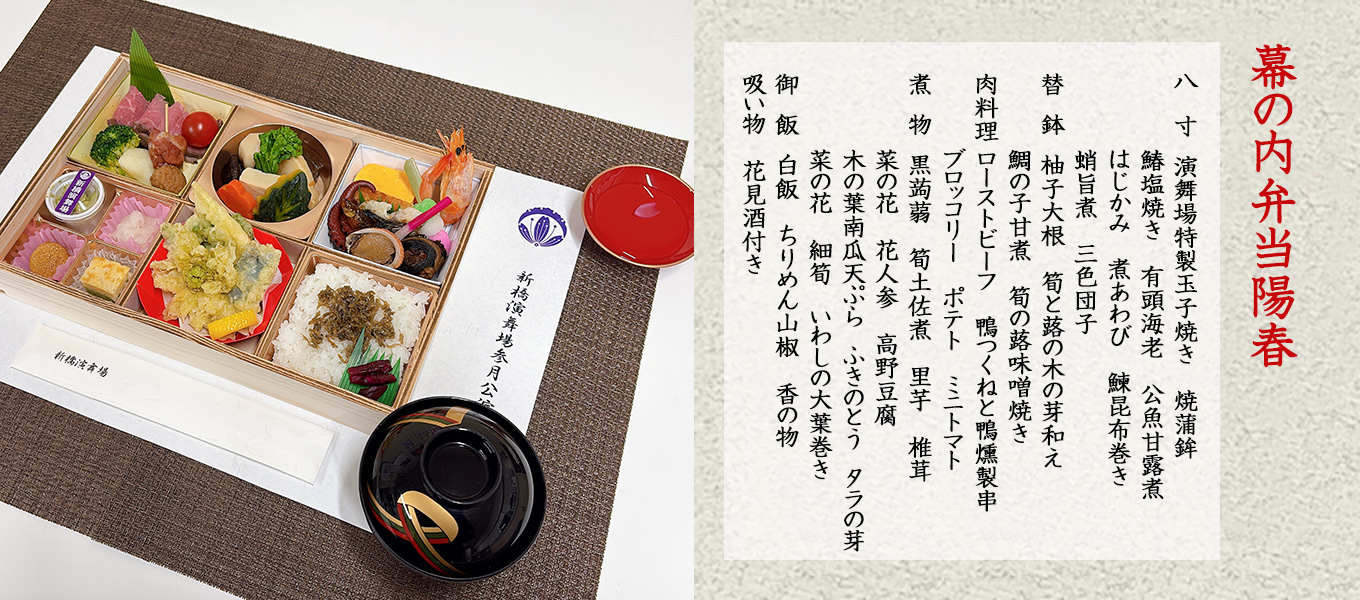 幕の内弁当陽春
八寸　演舞場特製玉子焼き　焼蒲鉾
鰆塩焼き　有頭海老　公魚甘露煮
はじかみ　煮あわび　鰊昆布巻き
蛸旨煮　三色団子
替鉢　柚子大根　筍と蕗の木の芽和え
鯛の子甘煮　筍の蕗味噌焼き
肉料理　ローストビーフ　鴨つくねと鴨燻製串
ブロッコリー　ポテト　ミニトマト
煮物　黒蒟蒻　筍土佐煮　里芋　椎茸
菜の花　花人参　高野豆腐
木の葉南瓜天ぷら　ふきのとう　タラの芽
菜の花　細筍　いわしの大葉巻き
御飯　白飯　ちりめん山椒　香の物
吸い物　花見酒付き
新橋演舞場参月公演
新橋演舞場
新橋演舞場